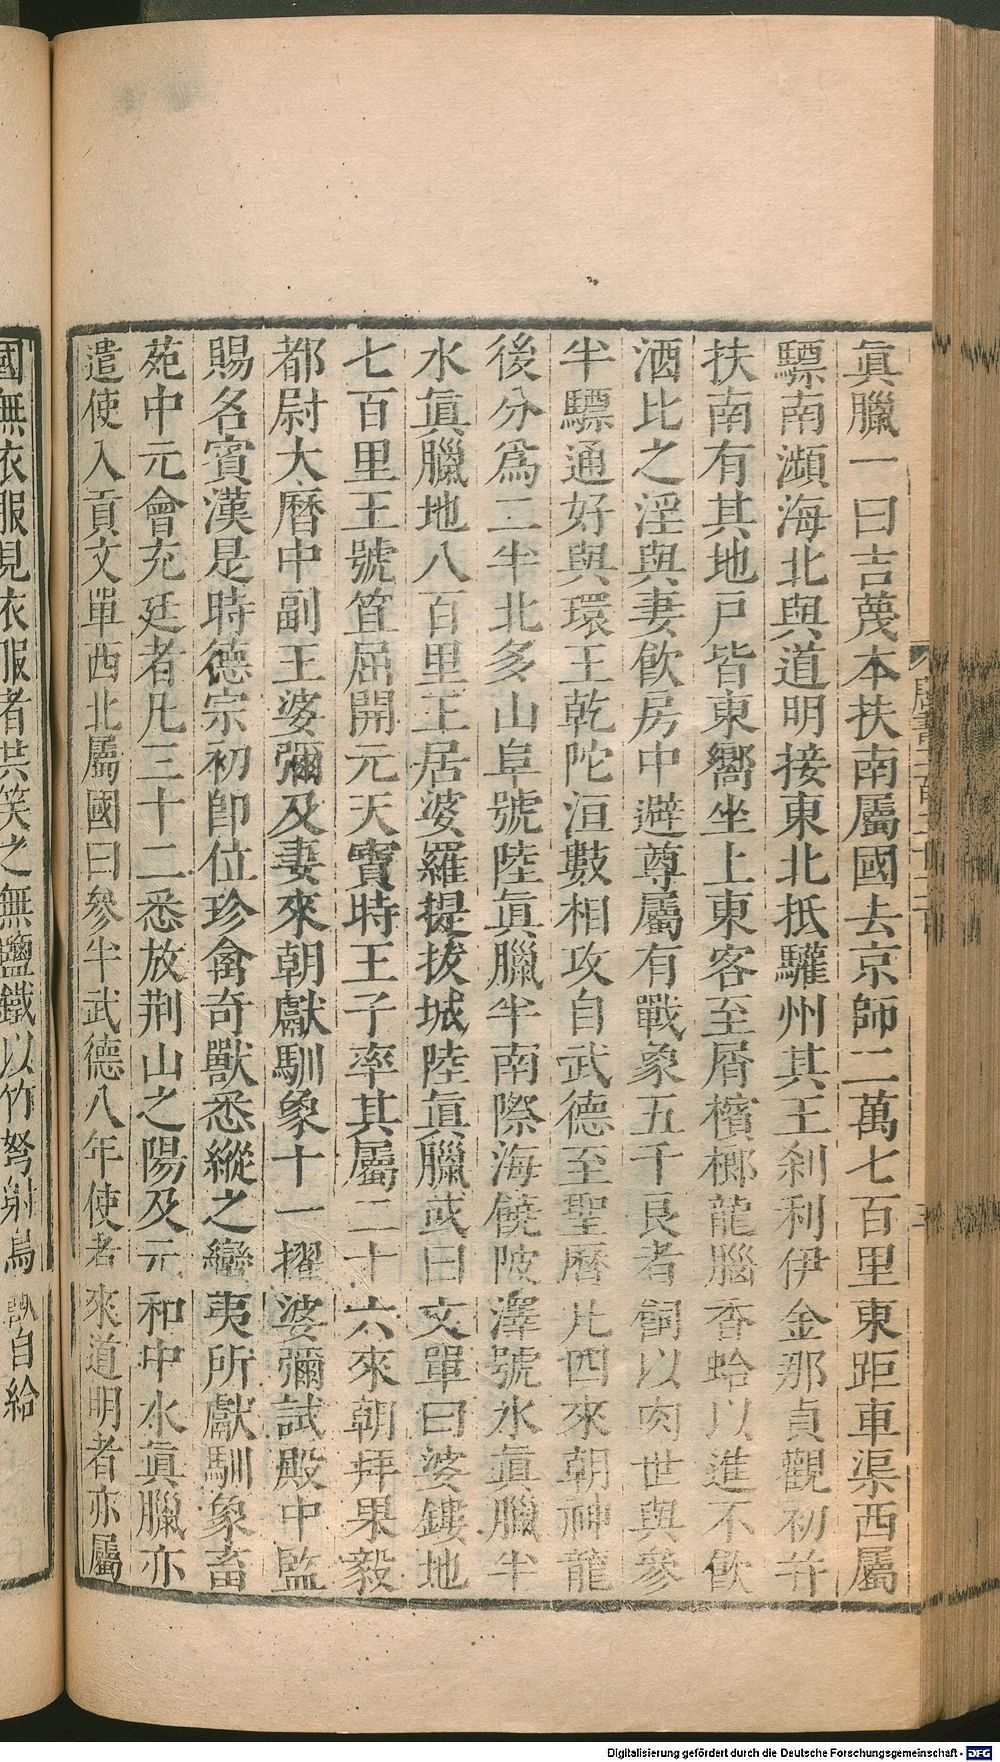 眞臘一曰吉蔑本扶南屬國去京師二萬七百里東距車渠西屬
驃南瀕海北與道明接東北抵驩州其王刹利伊金那貞觀初并
扶南有其地戸皆東嚮坐上東客至屑檳榔龍腦香蛤以進不飲
酒比之淫與妻飲房中避尊屬有戰象五千良者飼以肉世與參
半驃通好與環王乾陀洹數相攻自武德至聖曆凡四來朝神龍
後分爲二半北多山阜號陸眞臘半南際海饒陂澤號水眞臘半
水眞臘地八百里王居婆羅提拔城陸眞臘或曰文單曰婆鏤地
七百里王號笡屈開元天寶時王子率其屬二十六來朝拜果毅
都尉大曆中副王婆彌及妻來朝獻馴象十一擢婆彌試殿中監
賜名賓漢是時德宗初即位珍禽奇獸悉縱之蠻夷所獻馴象畜
苑中元會充廷者凡三十二悉放荆山之陽及元和中水眞臘亦
遣使入貢文單西北屬國曰參半武德八年使者來道明者亦屬
國無衣服見衣服者共笑之無鹽鐵以竹弩射鳥獸自給
Digitalisierung gefördert durch die Deutsche Forschungsgemeinschaft - DFG